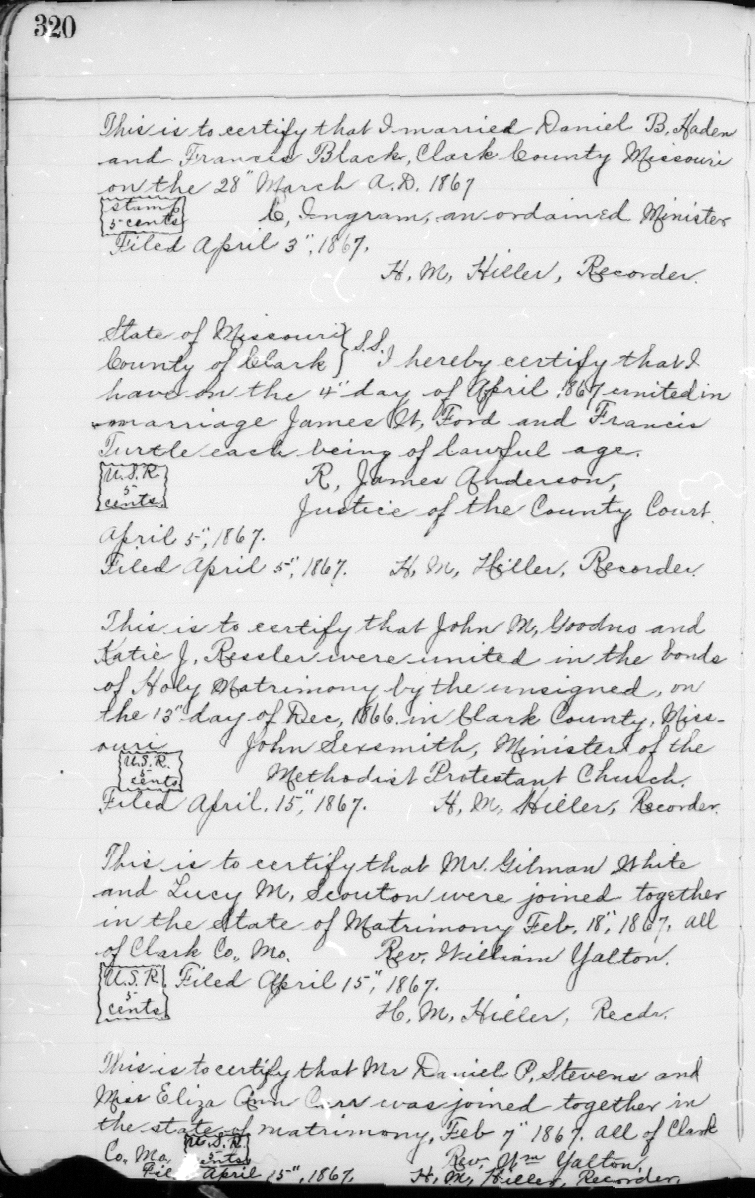 320
This is to certify that I married Daniel B. Haden
and Francis Black, Clark County Missouri
on the 28" March A.D. 1867
Stamp
5 cents
C, Ingram, an ordained Minister
Filed April 3", 1867.
H. M. Hiller, Recorder.
State of Missouri
County of Clark } S.S. I hereby certify that I
have on the 4" day of April 1867 united in
marriage James W. Ford and Francis
Turtle each being of lawful age.
U.S.R.
5
cents.
R, James Anderson,
Justice of the County Court.
April 5", 1867.
Filed April 5", 1867. H. M. Hiller, Recorder.
This is to certify that John M, Goodno and
Katie J. Ressler were united in the bonds
of Holy Matrimony by the unsigned, on
the 13" day of Dec, 1866. in Clark County, Miss-
ouri John Sexsmith, Minister of the
U.S.R.
5
cents
Methodist Protestant Church.
Filed April. 15," 1867. H. M. Hiller, Recorder.
This is to certify that Mr. Gilman White
and Lucy M, Scouton were joined together
in the State of Matrimony Feb. 18", 1867. all
of Clark Co., Mo. Rev. William Yalton.
U.S.R.
5
cents
Filed April 15", 1867.
H. M. Hiller, Recdr.
This is to certify that Mr Daniel P. Stevens and
Miss Eliza Ann was joined together in
the state of matrimony, Feb 7" 1867. all of Clark
Co. Mo. U.S.R.
5 cents
Rev. Wm Yalton.
Filed April 15", 1867. H. M. Hiller, Recorder.